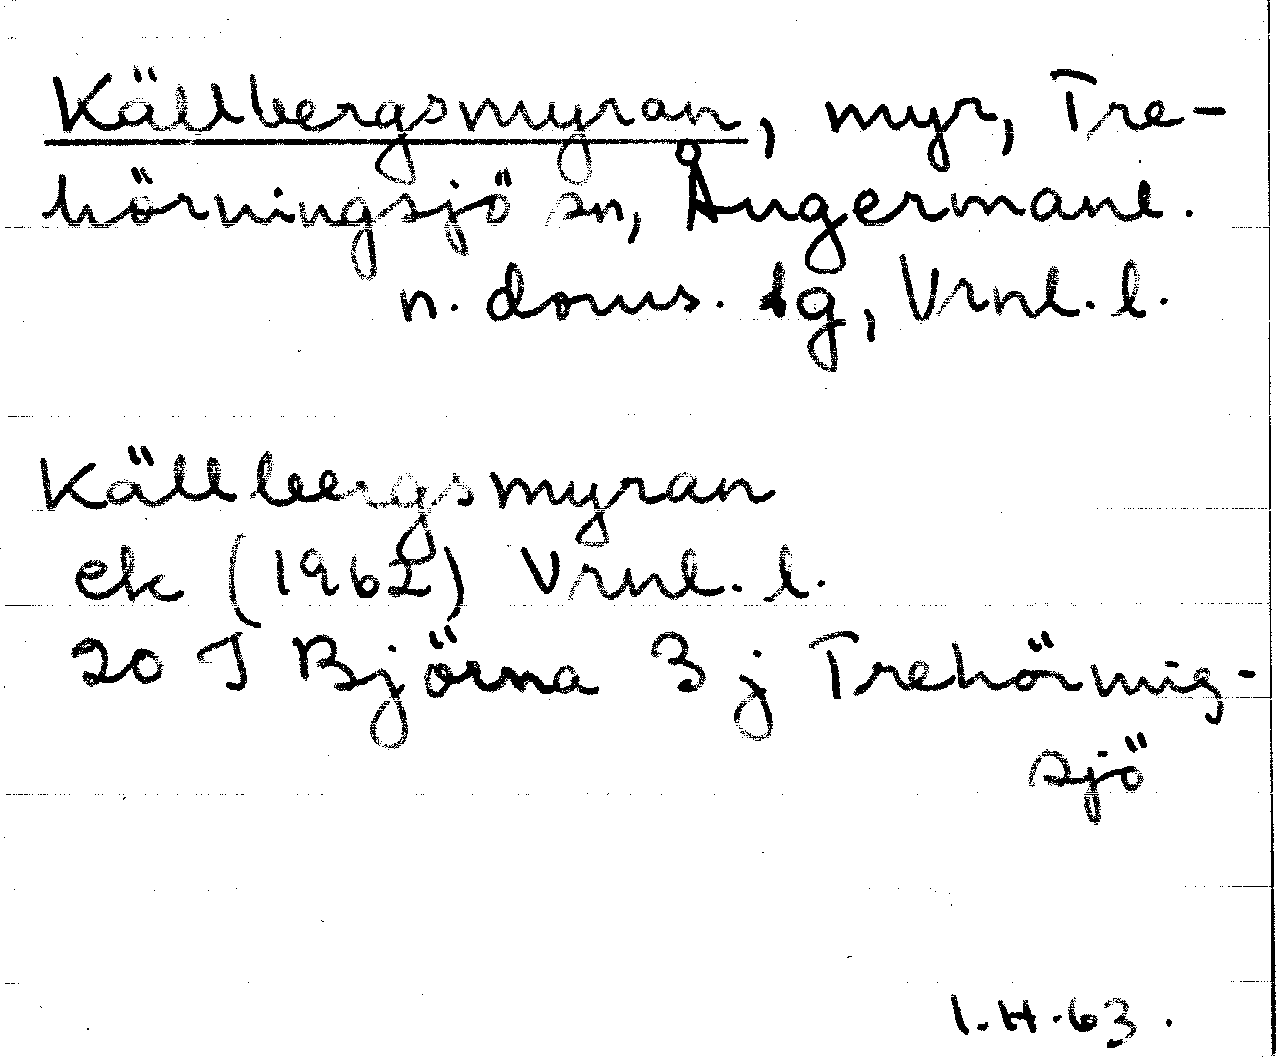 Källbergsmyran, myr, Tre-
hörningsjö sn, Ångermanl.
n. doms. lg, Vrnl. l.
Källbergsmyran
ek (1962) Vrnl. l.
20 J Björna 3 j Trehörnig-
sjö
I.H.63.